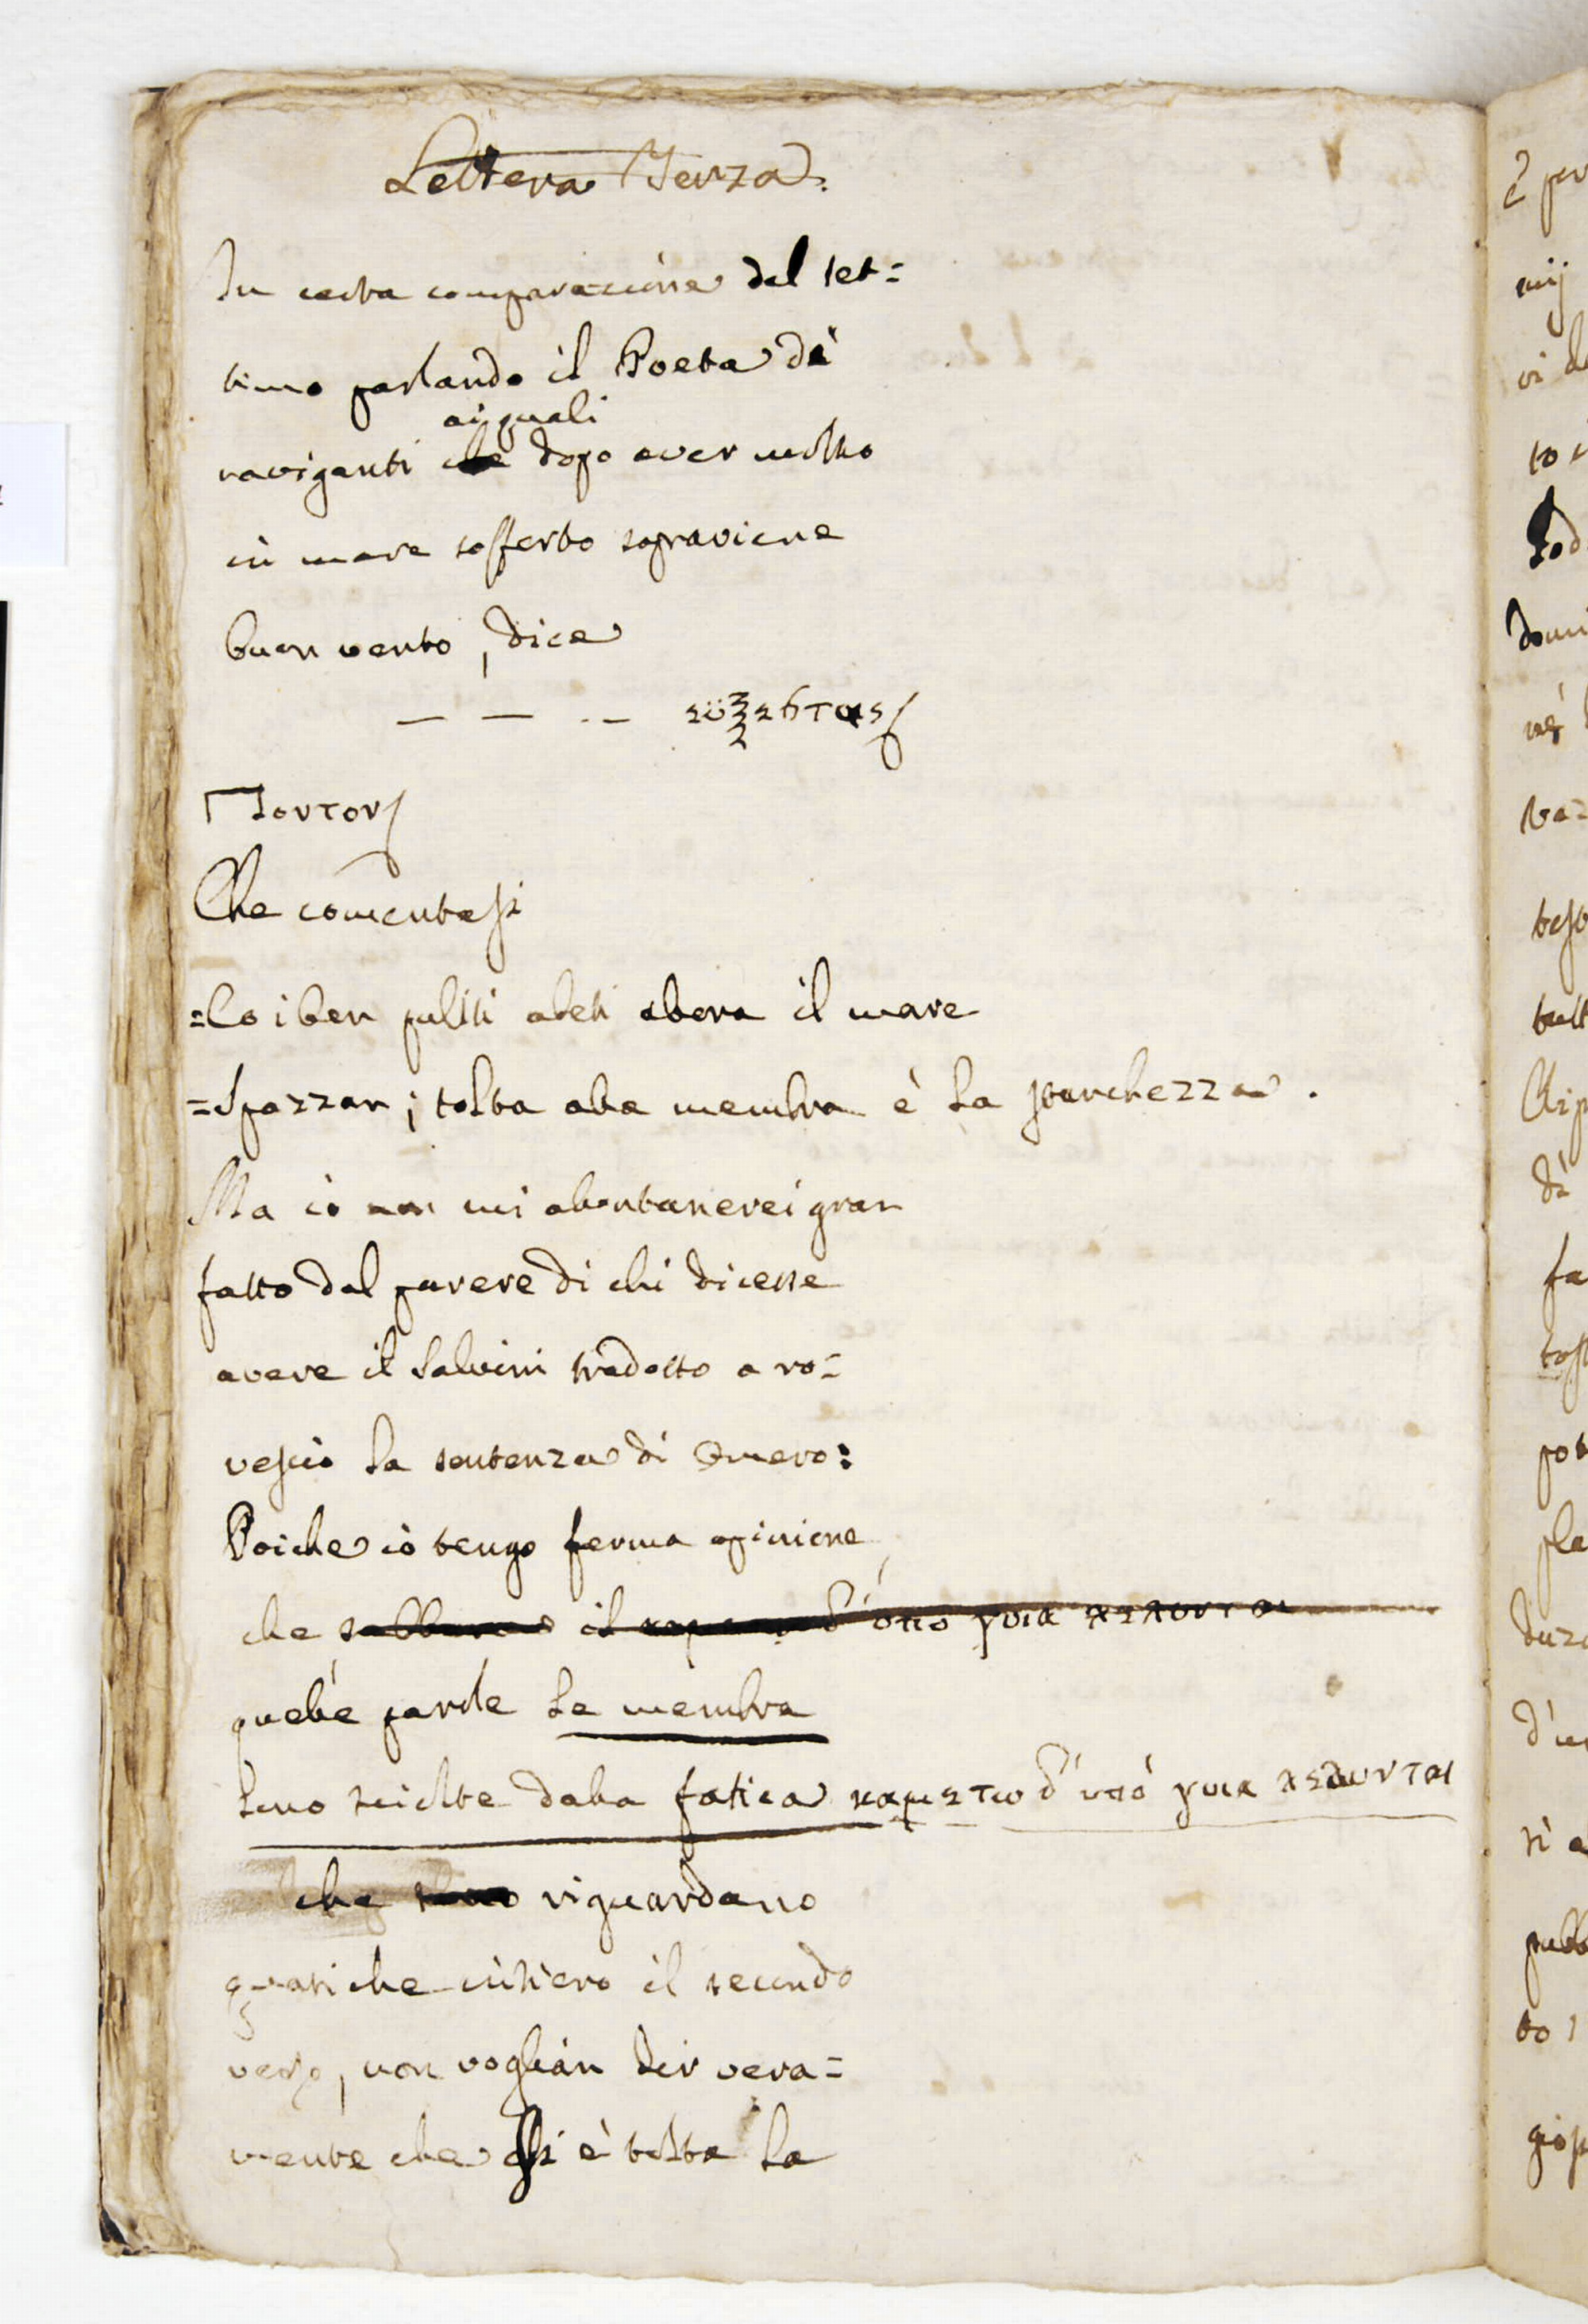 Lettera Terza.
In certa comparazione del set=
timo parlando il Poeta di
ai quali
naviganti che dopo aver molto
in mare sofferto sopraviene
buon vento, dice
— — — ἐϋξέστῃς
Ποντον
Che comentasi
=Co i ben puliti abeti
=Spazzan; tolta alle membra è la stanchezza.
Ma io non mi alontanerei gran
fatto dal parere di chi dicesse
avere il Salvini tradotto a ro=
vescio la sentenza di Omero:
Poiche io tengo ferma opinione
che il δ' ὑπὸ γυια λελυνται
quelle parole le membra
sono sciolte dalla fatica καματω δ' ὑπὸ γυια λελυνται
che sono riguardano
quasiche intiero il secondo
verso, non voglian dir vera=
mente che si è tolta la